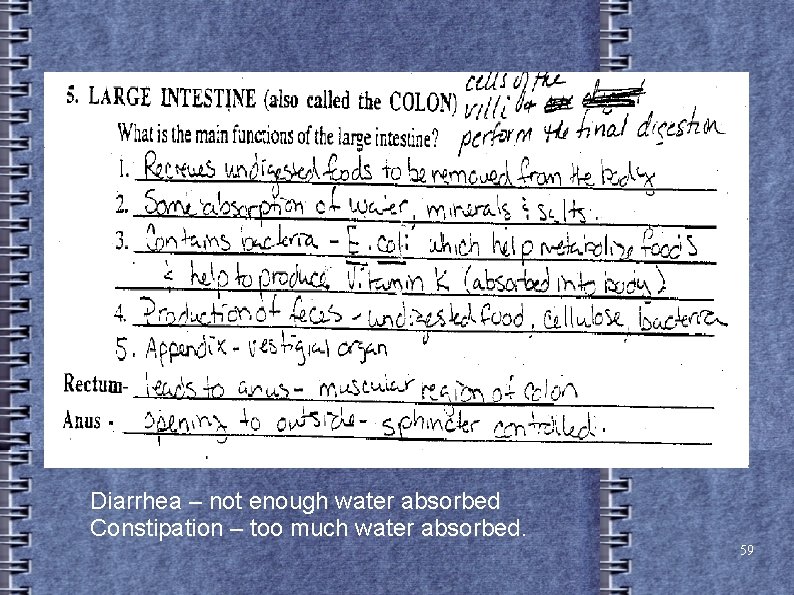 cells of the
5. LARGE INTESTINE (also called the COLON) villi
What is the main functions of the large intestine? perform the final digestion
1. Recieves undigested foods to be removed from the body
2. Some absorption of water, minerals & salts.
3. Contains bacteria - E. coli which help metabolize foods
& help to produce Vitamin K (absorbed into body)
4. Production of feces - undigested food, cellulose, bacteria
5. Appendix - vestigial organ
Rectum- leads to anus - muscular region of colon
Anus - opening to outside - sphincter controlled.
Diarrhea – not enough water absorbed
Constipation – too much water absorbed.
59